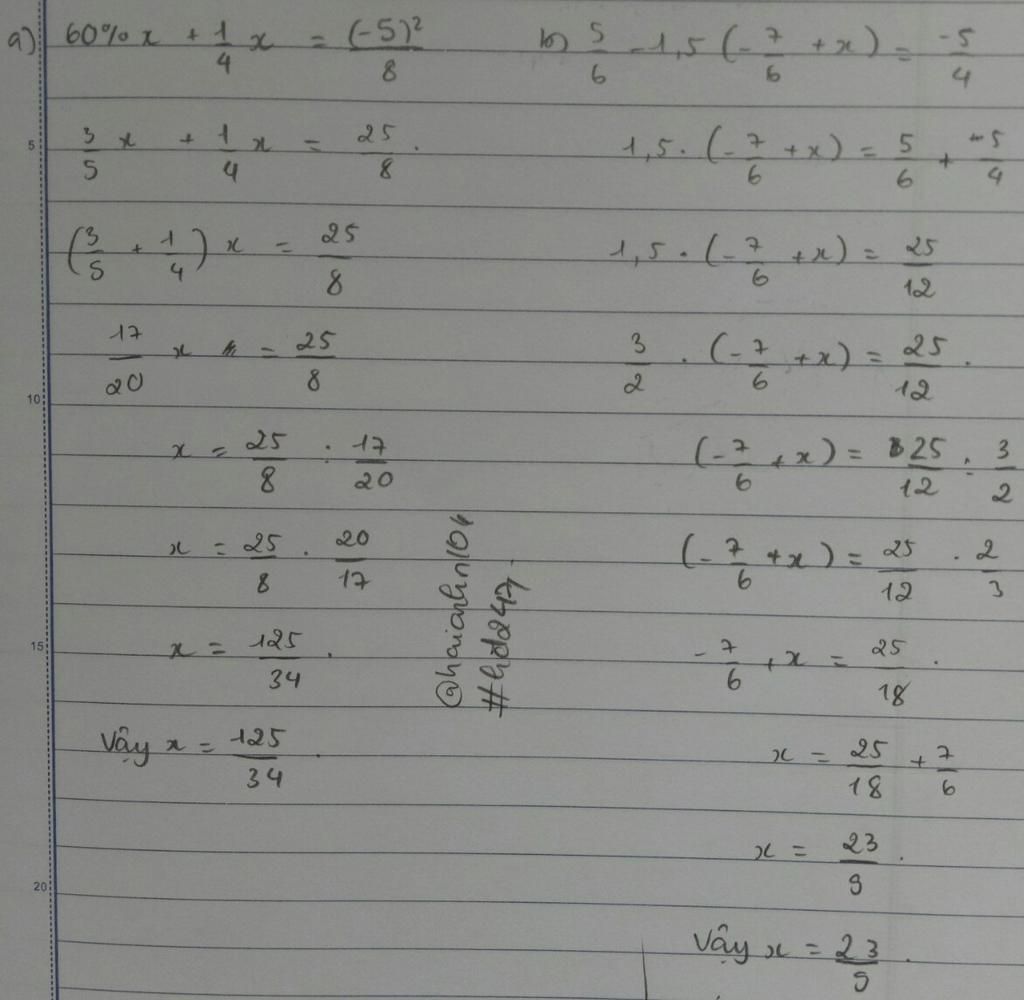 a) 60% x + 1/4 x = (-5)²/8
3/5 x + 1/4 x = 25/8 .
(3/5 + 1/4) x = 25/8
17/20 x = 25/8
x = 25/8 : 17/20
x = 25/8 . 20/17
x = 125/34 .
Vậy x = 125/34 .
@haianhn106
#hd247
b) 5/6 - 1,5 (-7/6 + x) = -5/4
1,5 . (-7/6 + x) = 5/6 + -5/4
1,5 . (-7/6 + x) = 25/12
3/2 . (-7/6 + x) = 25/12 .
(-7/6 + x) = 25/12 : 3/2
(-7/6 + x) = 25/12 . 2/3
-7/6 + x = 25/18 .
x = 25/18 + 7/6
x = 23/9 .
Vậy x = 23/9 .
5
10
15
20